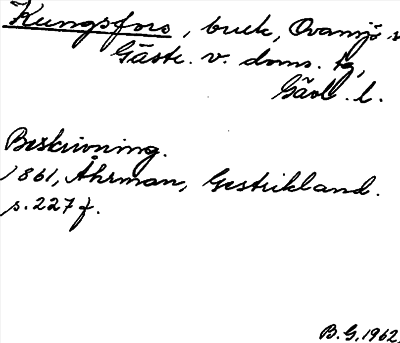 Kungsfors, bruk, Ovansjö s
Gästr. v. doms. tg,
Gävl. l.
Beskrivning.
1861, Åhrman, Gestrikland.
s. 227 f.
B.G. 1962.